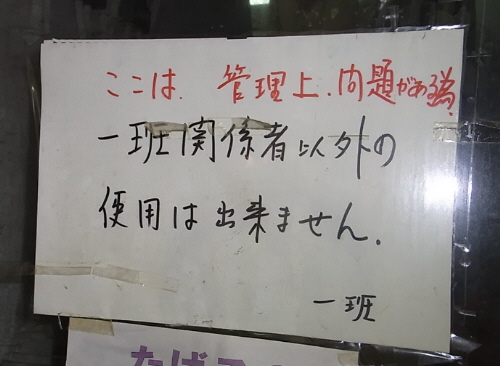 ここは、管理上、問題がある為、
一班関係者以外の
使用は出来ません.
一班
たばこ